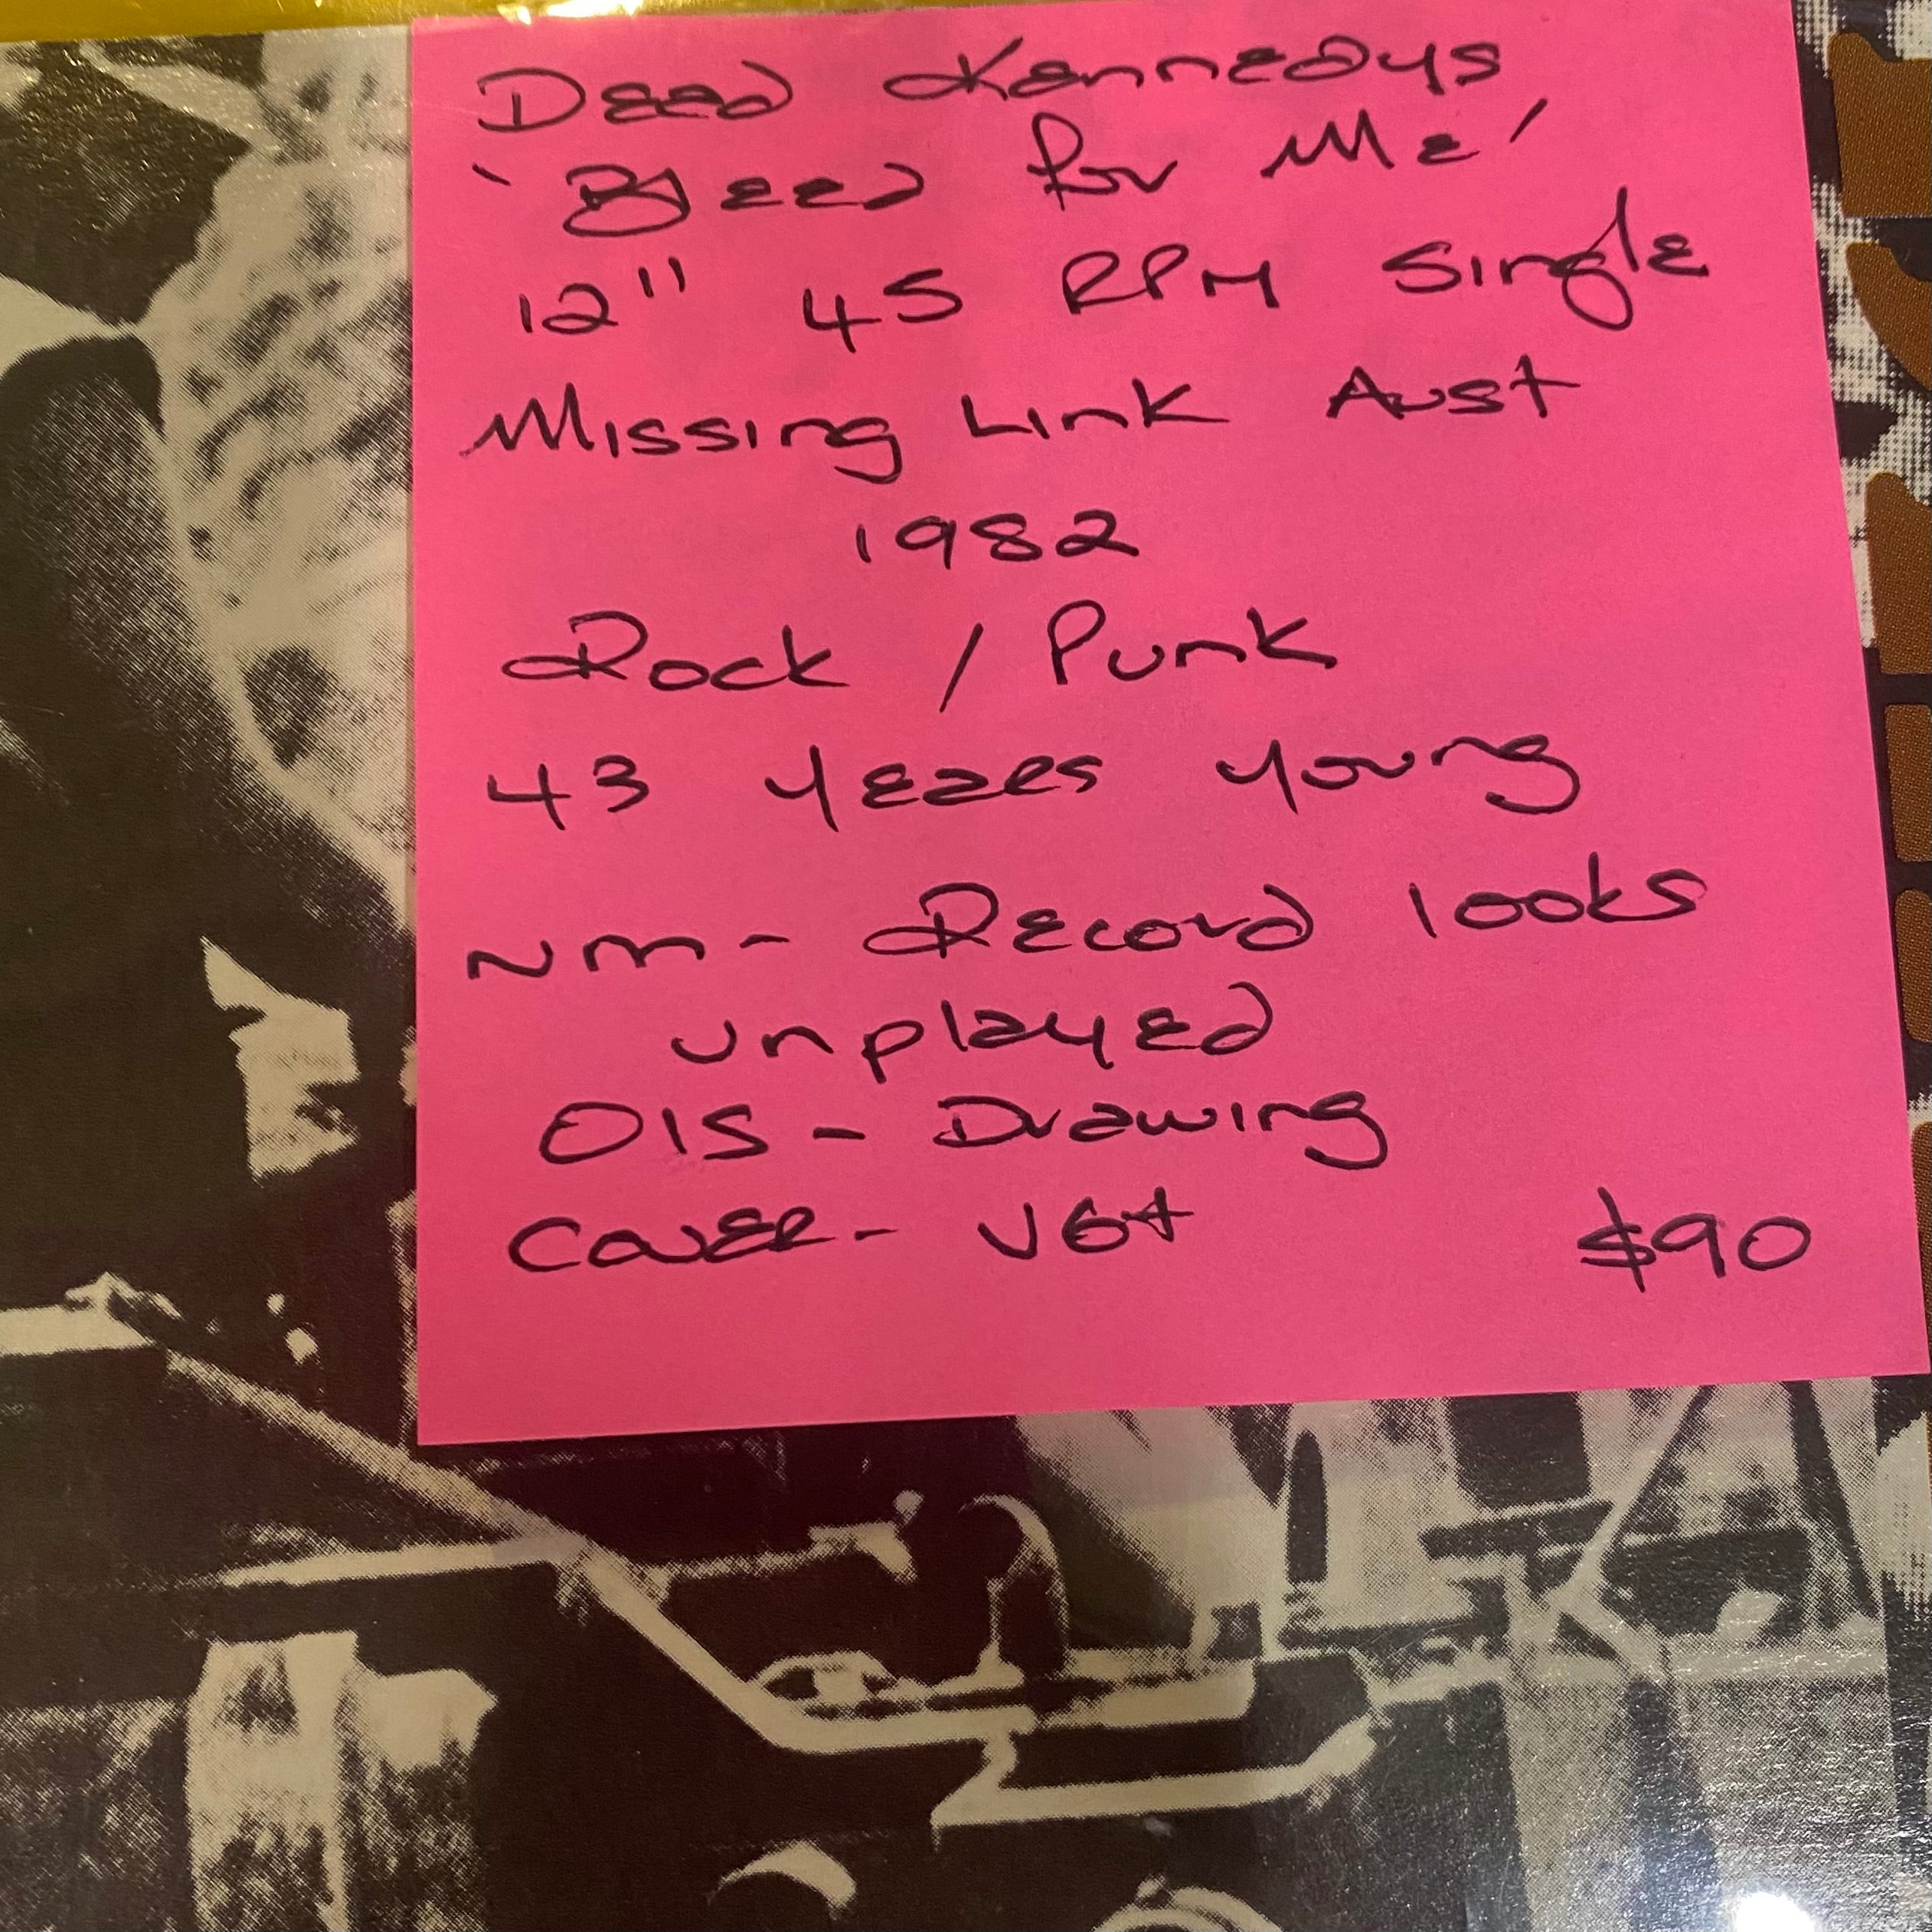 Dead Kennedys
'Bleed for Me'
12" 45 RPM Single
Missing Link Aust
1982
Rock / Punk
43 Years Young
NM- Record looks
unplayed
OIS - Drawing
Cover - VG+ $90